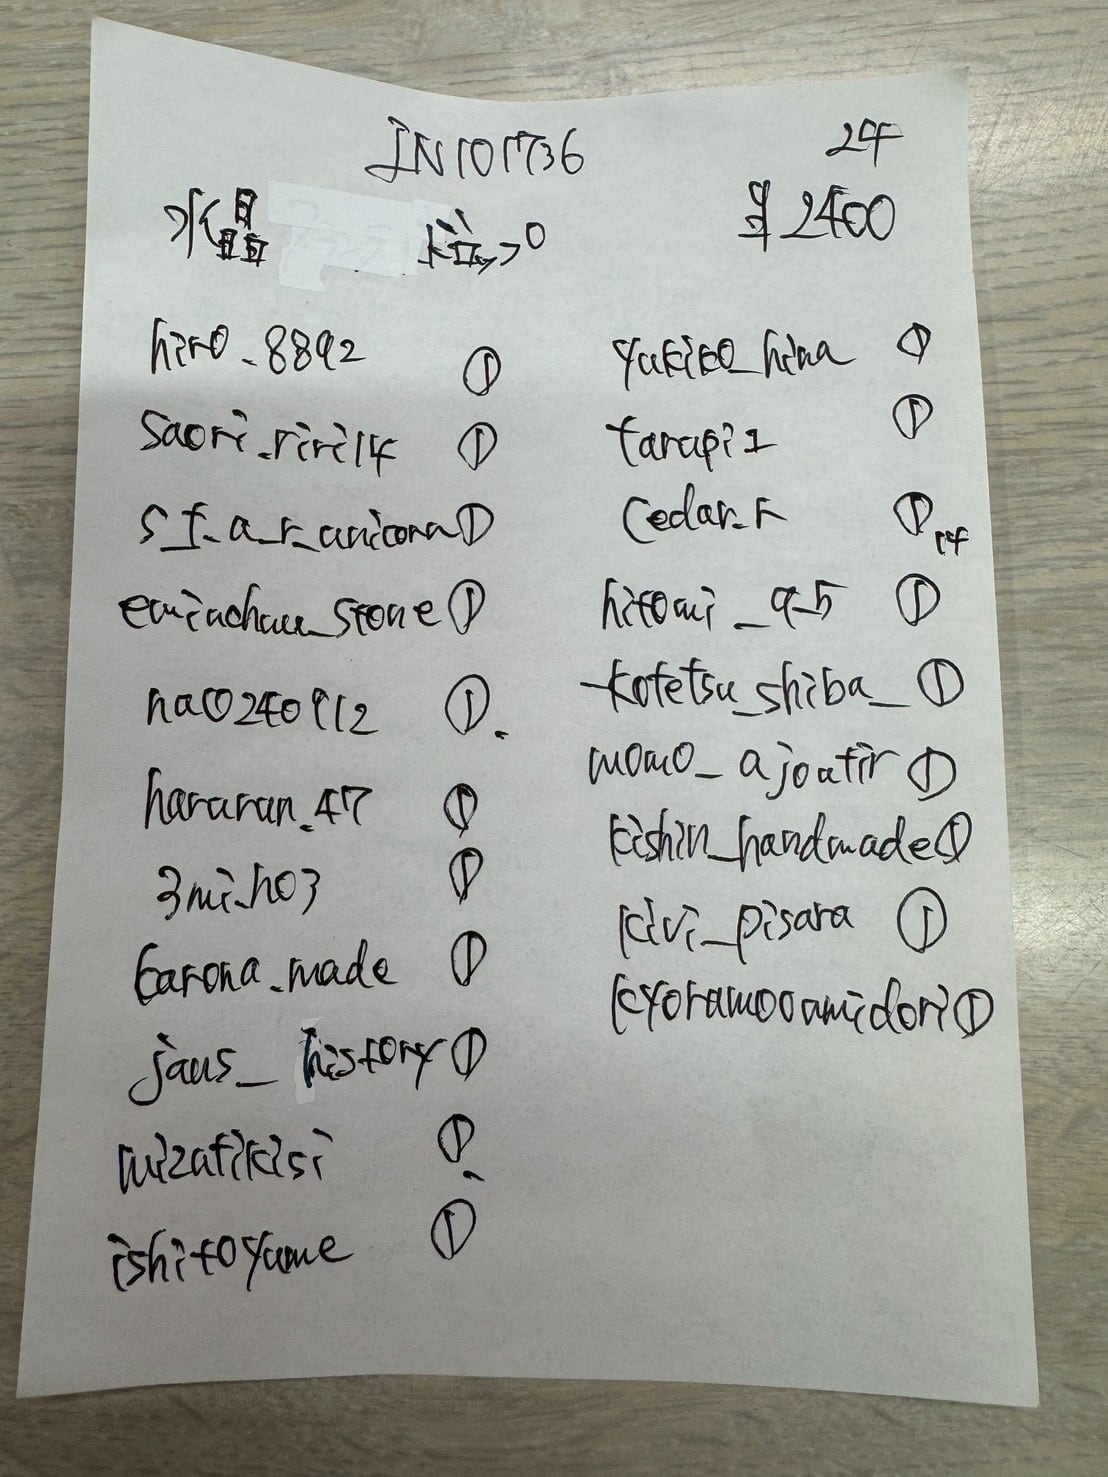 IN101736
24
水晶
¥2400
hiro_8892 ①
saori_riri14 ①
s_f_a_r_unicorn ①
emiachau_stone ①
nao240912 ①
hararan_47 ①
3mi_ho3 ①
barona_made ①
jaus_history ①
mizatikisi ①
ishitoyume ①
yukiko_hina ①
tarapi1 ①
cedar_r ①
14
hitomi_9_5 ①
kotetsu_shiba_ ①
momo_ajoutir ①
kishin_handmade ①
kivi_pisara ①
kyoramooamidori ①